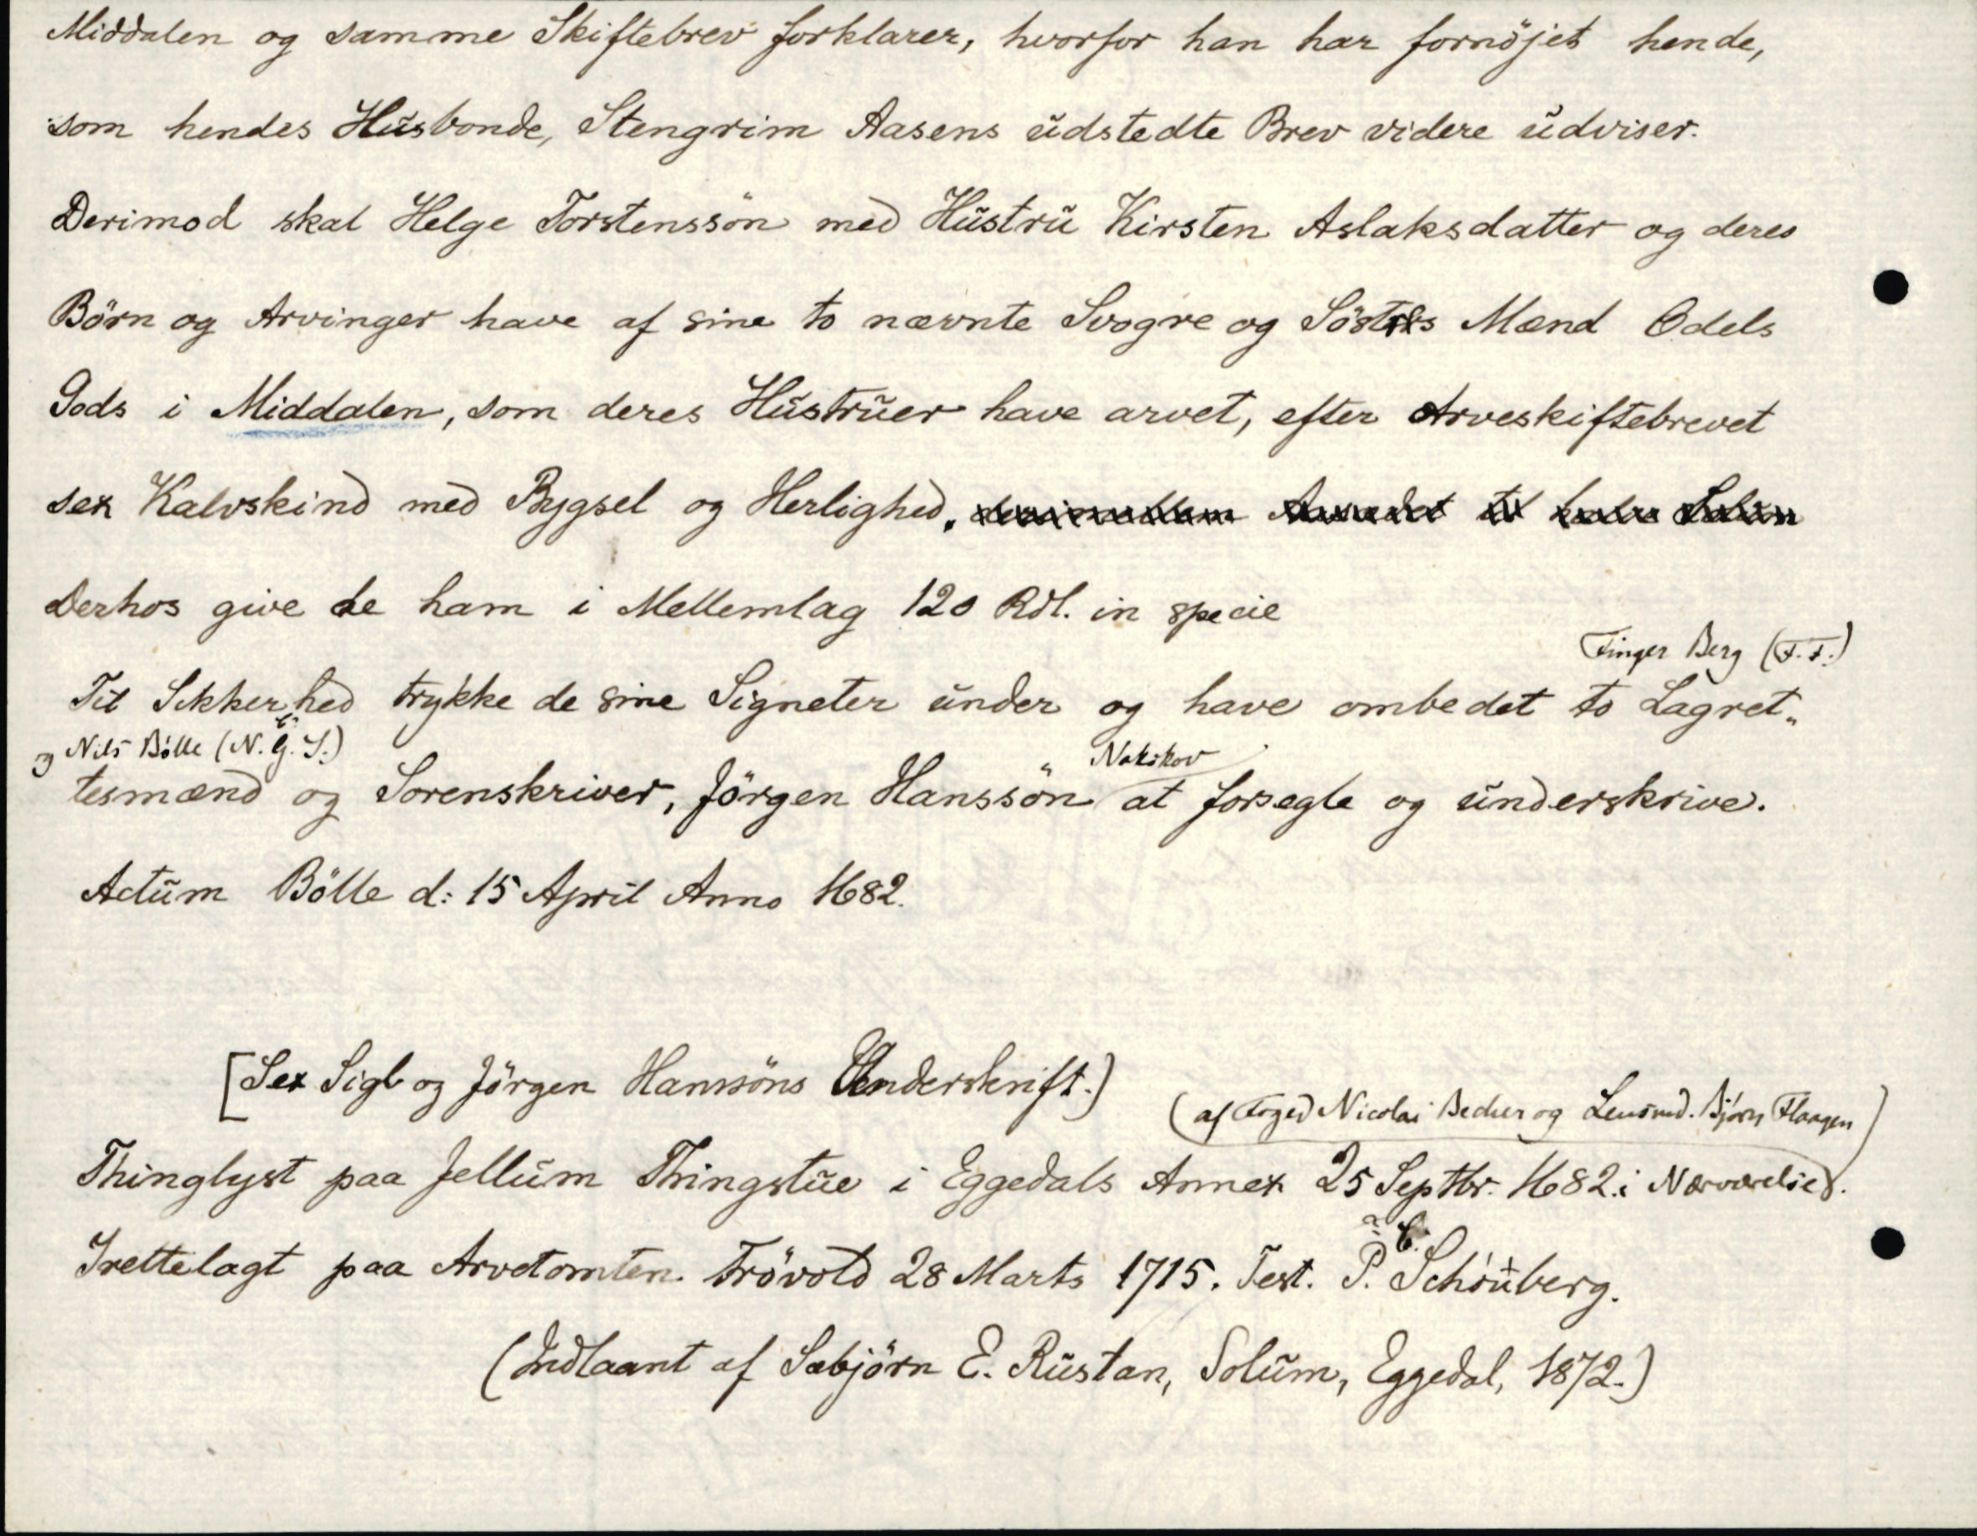 Middalen og samme Skiftebrev forklarer, hvorfor han har fornöjet hende,
som hendes Husbonde, Stengrim Aasens udstedte Brev videre udviser.
Derimod skal Helge Torstenssön med Hustru Kirsten Aslaksdatter og deres
Börn og Arvinger have af sine to nævnte Svogre og Sösters Mænd Odels
Gods i Middalen, som deres Hustruer have arvet, efter Arveskiftebrevet
sex Kalvskind med Bygsel og Herlighed.
Derhos give de ham i Mellemlag 120 Rdl. in specie
Finger Berg (F. F.)
Til Sikkerhed trykke de sine Signeter under og have ombedet to Lagret„
og Nils Bölle (N. G. S.)
Nakskov
tesmænd og Sorenskriver, Jörgen Hanssön at forsegle og underskrive.
Actum Bölle d: 15 April Anno 1682.
[Sex Sigl og Jörgen Hanssöns Underskrift.)
(af Foged Nicolai Becker og Lensmd. Björn Flaagen)
Thinglyst paa Jellum Thingstue i Eggedals Annex 25 Septbr. 1682. i Nærværelse.
Irettelagt paa Arvetomten Frövold 28 Marts 1715. Test. P. C. Schiuberg.
(Indlaant af Sebjörn E. Rustan, Solum, Eggedal, 1872.)